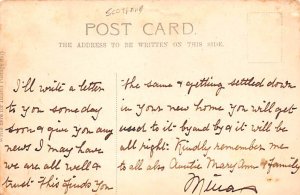 SCOTLAND
POST CARD.
THE ADDRESS TO BE WRITTEN ON THIS SIDE.
I'll write a letter
to you some day
soon & give you any
news I may have
we are all well &
trust this finds you
the same & getting settled down
in your new home you will get
used to it by and by & it will be
all right. Kindly remember me
to all also Auntie Mary Ann & family
Mina